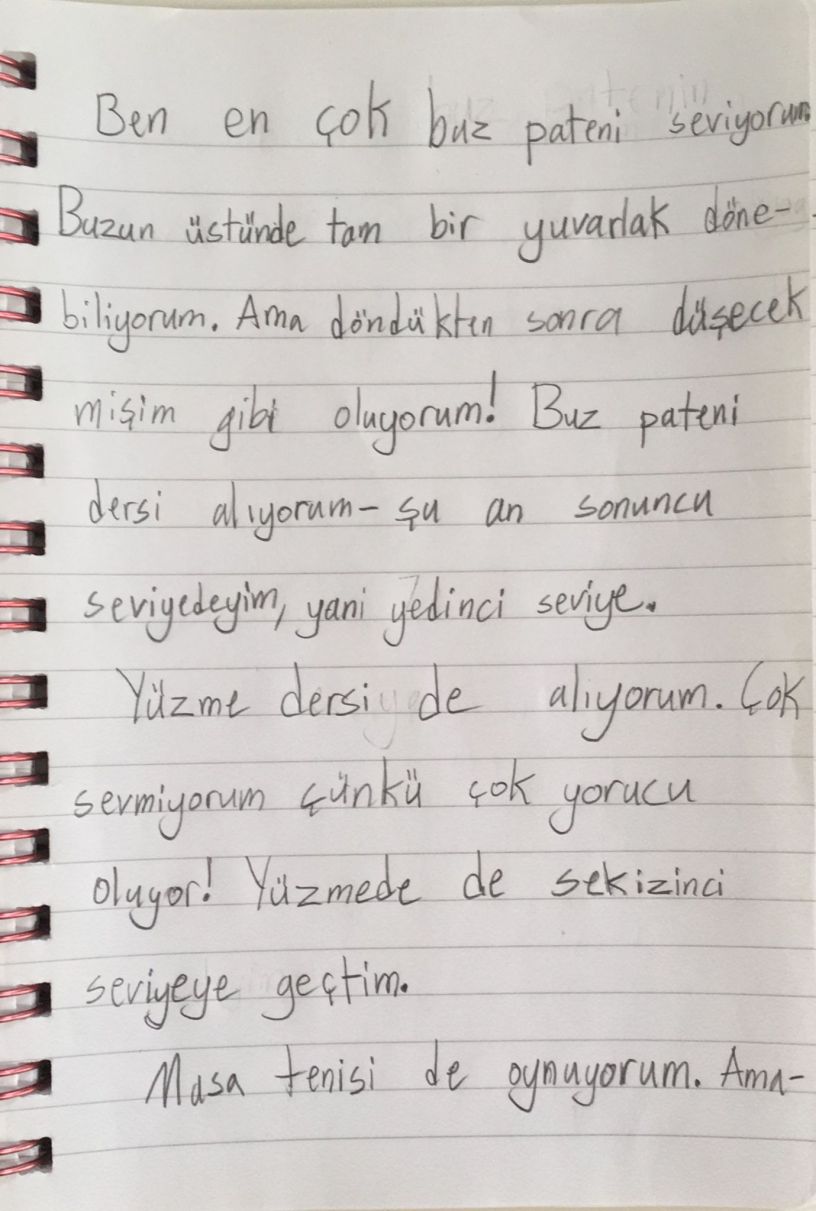 Ben en çok buz pateni seviyorum
Buzun üstünde tam bir yuvarlak döne-
biliyorum. Ama döndükten sonra düşecek
mişim gibi oluyorum! Buz pateni
dersi alıyorum- şu an sonuncu
seviyedeyim, yani yedinci seviye.
Yüzme dersi de alıyorum. Çok
sevmiyorum çünkü çok yorucu
oluyor! Yüzmede de sekizinci
seviyeye geçtim.
Masa tenisi de oynuyorum. Ama-